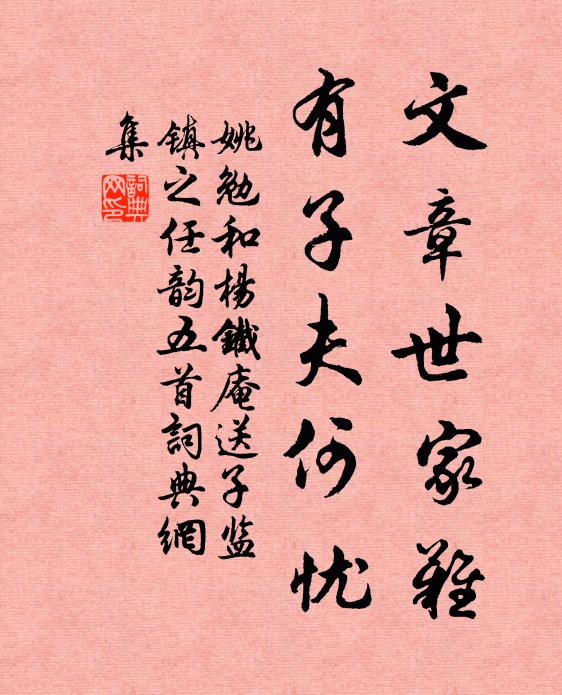 文章世家難
有子夫何忧
姚勉和楊鐵庵送子监
镇之任韵五首詞典網
集
詞典
网印